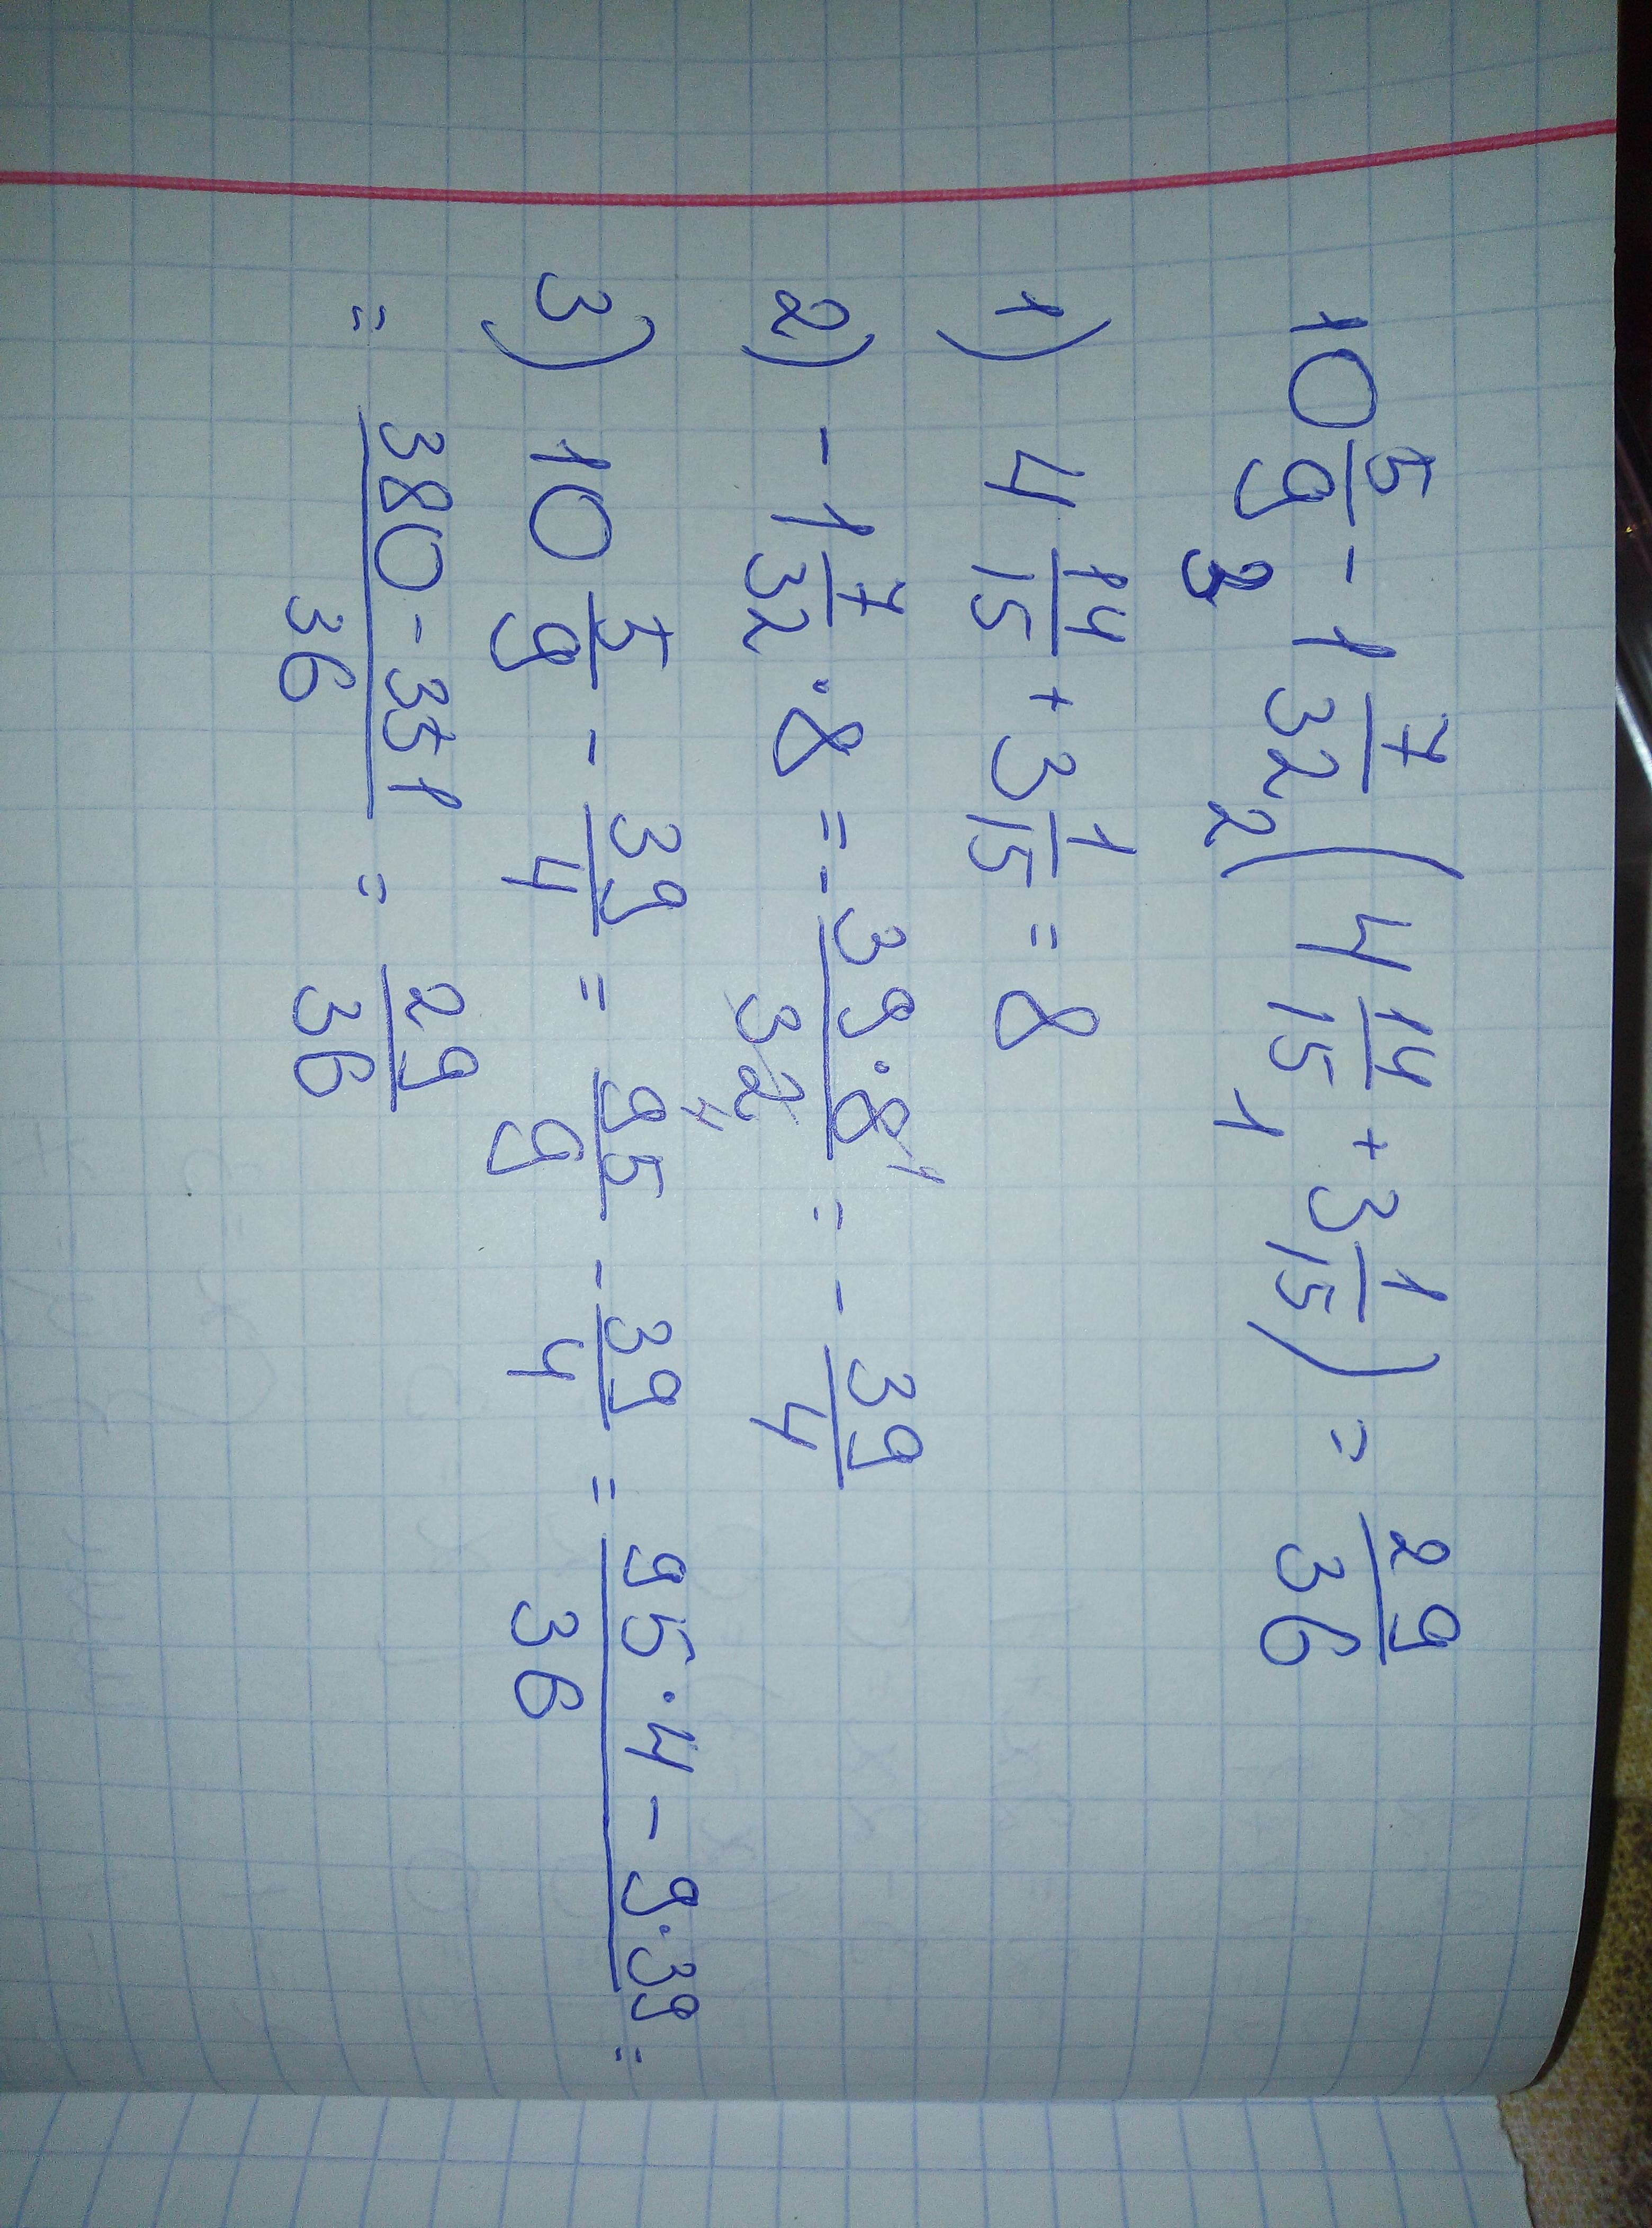 10 5/9 - 1 7/32 ( 4 14/15 + 3 1/15 ) = 29/36
3 2 1
1) 4 14/15 + 3 1/15 = 8
2) - 1 7/32 · 8 = - 39·8¹/32₄ = - 39/4
3) 10 5/9 - 39/4 = 95/9 - 39/4 = 95·4 - 9·39/36 =
= 380 - 351/36 = 29/36